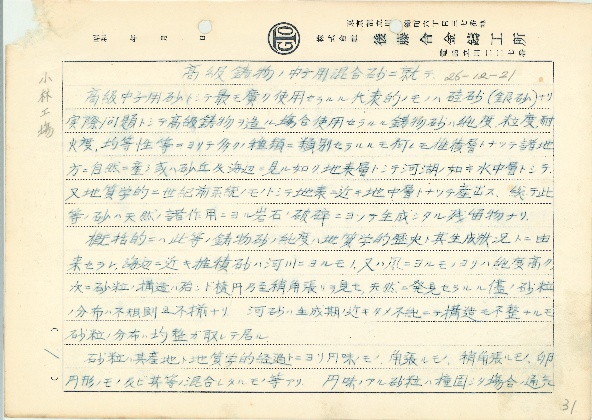 昭和 年 月 日
GTO
株式会社 後藤合金鋳工所
小林工場
高級鋳物ノ中子用混合砂ニ就テ 26-12-21
高級中子用砂トシテ最モ廣ク使用セラルル代表的ノモノハ硅砂(銀砂)ナリ
実際問題トシテ高級鋳物ヲ造ル場合使用セラルル鋳物砂ハ純度、粒度、耐
火度、均等性等ニヨリテ多クノ種類ニ類別セラルルモ何レモ堆積層トナリテ諸地
方ニ自然ニ産シ或ハ砂丘及海辺ニ見ル如ク地表層トシテ河湖ノ如キ水中層トシテ
又地質学的ニ世紀系統ノモノトシテ地表ニ近キ地中層トナリテ産出ス 従テ此
等ノ砂ハ天然ノ諸作用ニヨル岩石ノ破砕ニヨリテ生成シタル残留物ナリ
概括的ニハ此等ノ鋳物砂ノ純度ハ地質学的歴史ト其生成状况トニ由
来セラレ海辺ニ近キ堆積砂ハ河川ニヨルモノ、又ハ風ニヨルモノヨリハ純度高ク、
次ニ砂粒ノ構造ハ殆ンド積円乃至稍角張リヲ見セ、天然ニ発見セラルル儘ノ砂粒
ノ分布ハ不規則且不揃ナリ 河砂ハ生成期近キタメ不純ニテ構造モ不整ナルモ
砂粒ノ分布ハ均整ガ取レテ居ル
砂粒ハ其産地ト地質学的経過トニヨリ円味ノモノ、角張ルモノ、稍角張ルモノ、卵
円形ノモノ及ビ其等ノ混合シタルモノ等アリ 円味ノアル砂粒ハ搗固シタ場合ノ通気
( 1 )
31